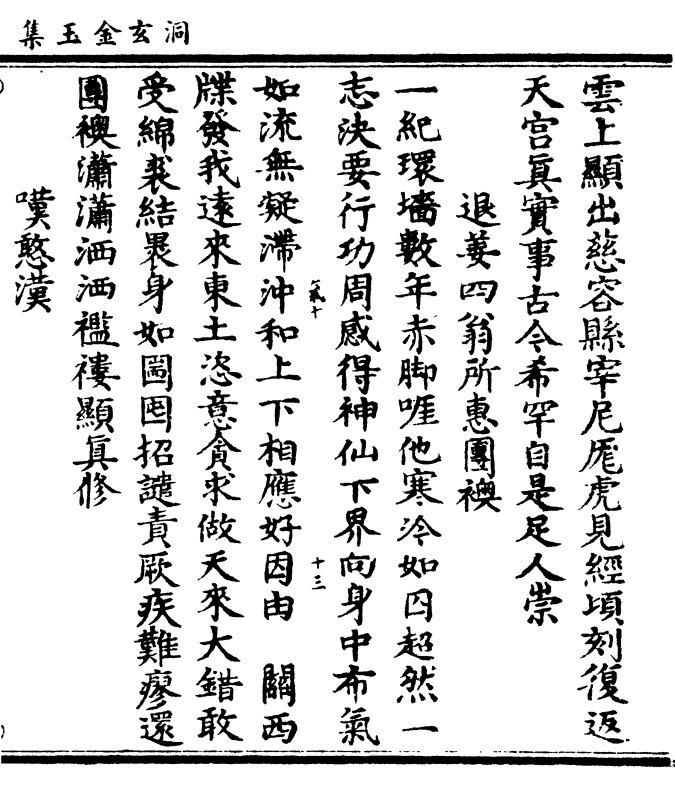 洞玄金玉集
雲上顯出慈容縣宰尼厖虎見經頃刻復返
天宫眞實事古今希罕自是足人崇
退姜四翁所惠團襖
一紀環墻數年赤脚啀他寒冷如囚超然一
志決要行功周感得神仙下界向身中布氣
如流無凝滯沖和上下相應好因由　關西
氣十
十三
牒發我遠來東土恣意貪求做天來大錯敢
受綿裘結褁身如圖囤招譴責厥疾難瘳還
團襖瀟瀟洒洒襤褸顯眞修
嘆憨漢